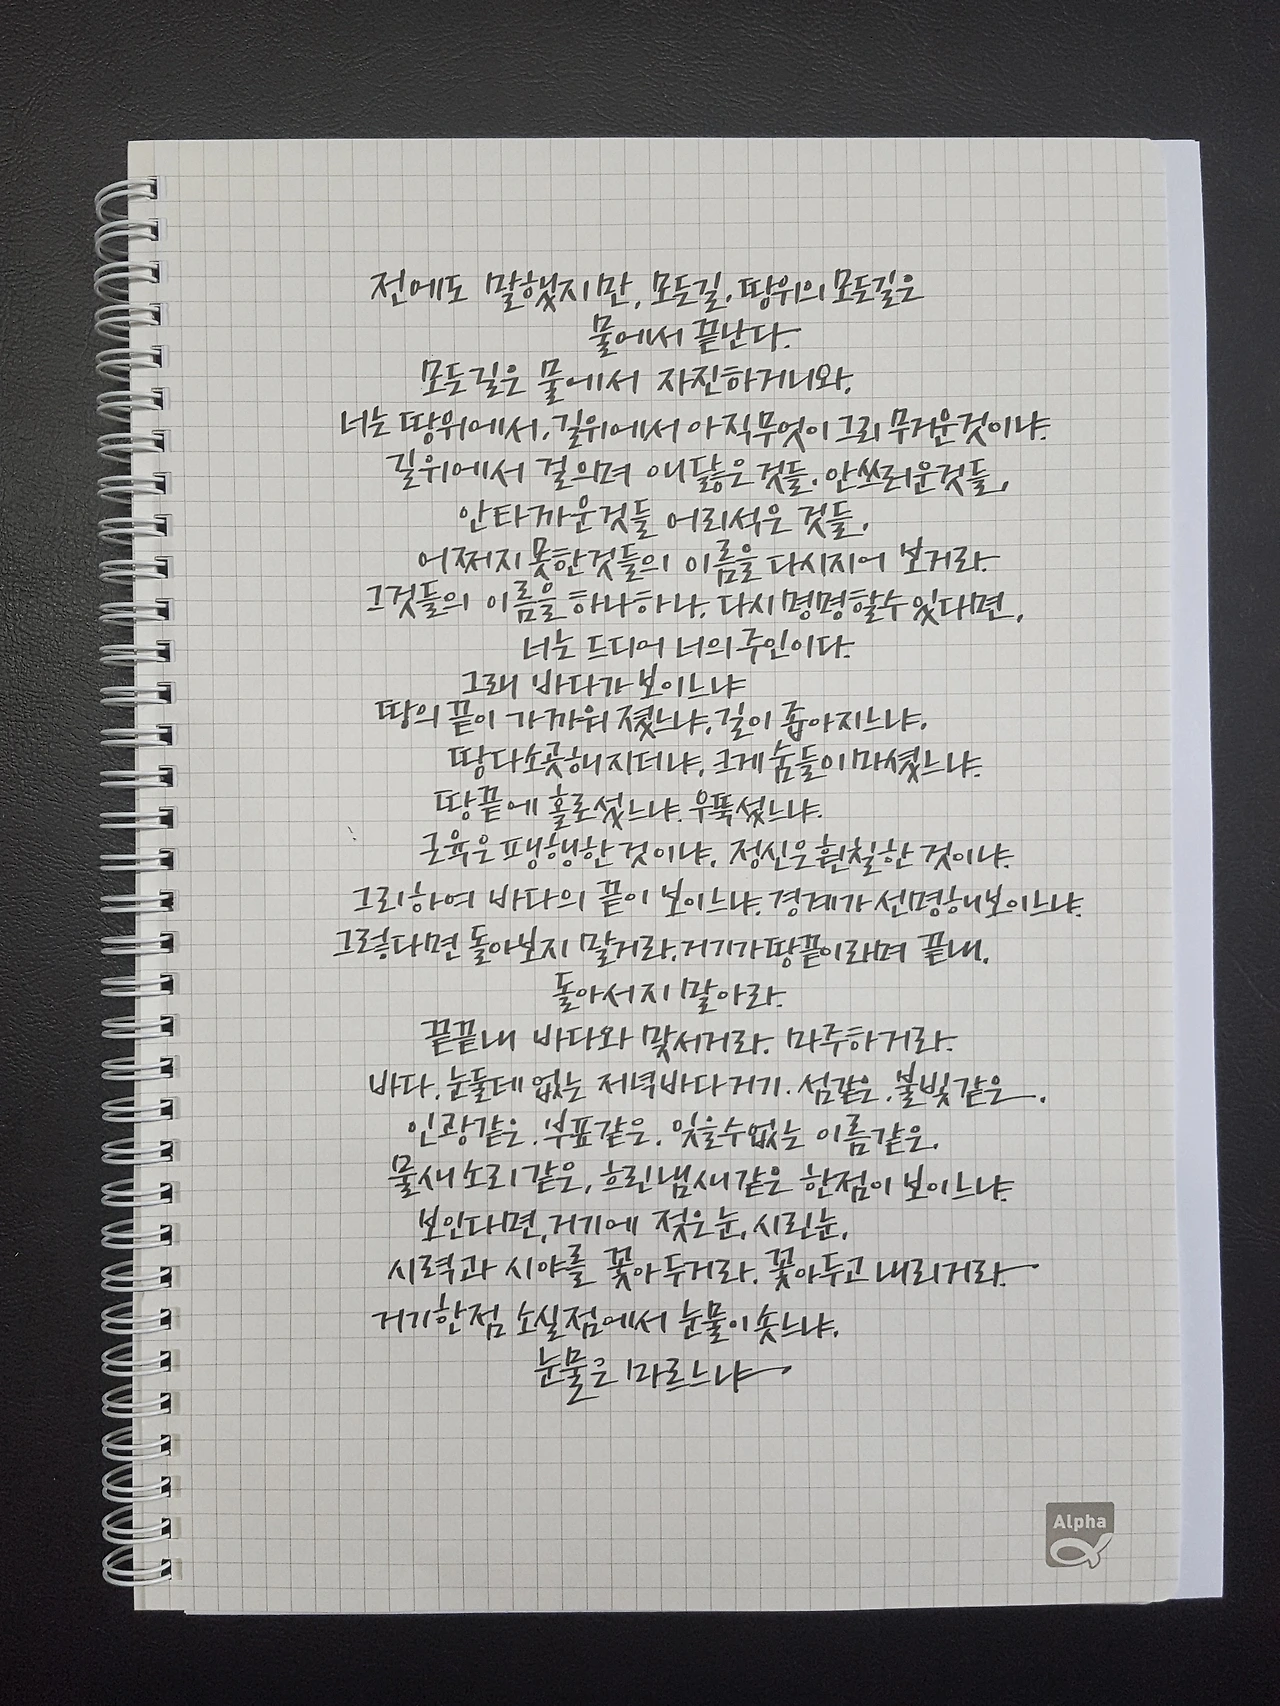 전에도 말했지만, 모든길. 땅위의 모든길은
물에서 끝난다.
모든길은 물에서 자진하거니와,
너는 땅위에서. 길위에서 아직무엇이 그리 무거운것이냐.
길위에서 걸으며 애닳은것들. 안쓰러운것들,
안타까운것들 어리석은 것들,
어쩌지못한것들의 이름을 다시지어 보거라.
그것들의 이름을 하나하나. 다시명명할수있다면,
너는 드디어 너의주인이다.
그래 바다가 보이느냐
땅의 끝이 가까워졌느냐. 길이 좁아지느냐.
땅다소곳해지더냐. 크게숨들이마셨느냐.
땅끝에 홀로섰느냐. 우뚝섰느냐.
근육은팽행한것이냐. 정신은훤칠한것이냐.
그리하여 바다의 끝이 보이느냐. 경계가 선명해보이느냐.
그렇다면 돌아보지 말거라. 거기가땅끝이라며 끝내,
돌아서지 말아라.
끝끝내 바다와 맞서거라. 마주하거라.
바다. 눈둘데없는 저녁바다거기. 섬같은. 불빛같은.
인광같은. 부표같은. 잊을수없는 이름같은.
물새소리같은, 흐린냄새같은 한점이 보이느냐.
보인다면, 거기에 젖은눈, 시린눈,
시력과 시야를 꽂아두거라. 꽂아두고 내리거라.
거기한점 소실점에서 눈물이솟느냐.
눈물은 마르느냐
Alpha